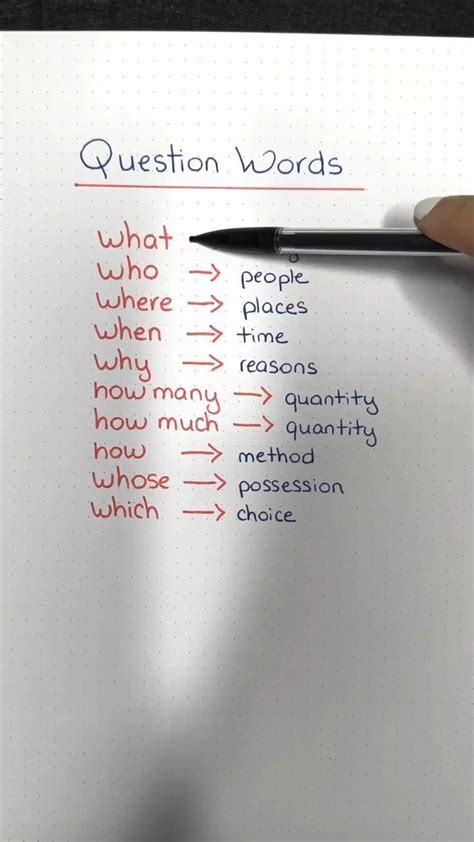 Question Words
what
who → people
where → places
when → time
why → reasons
how many → quantity
how much → quantity
how → method
whose → possession
which → choice